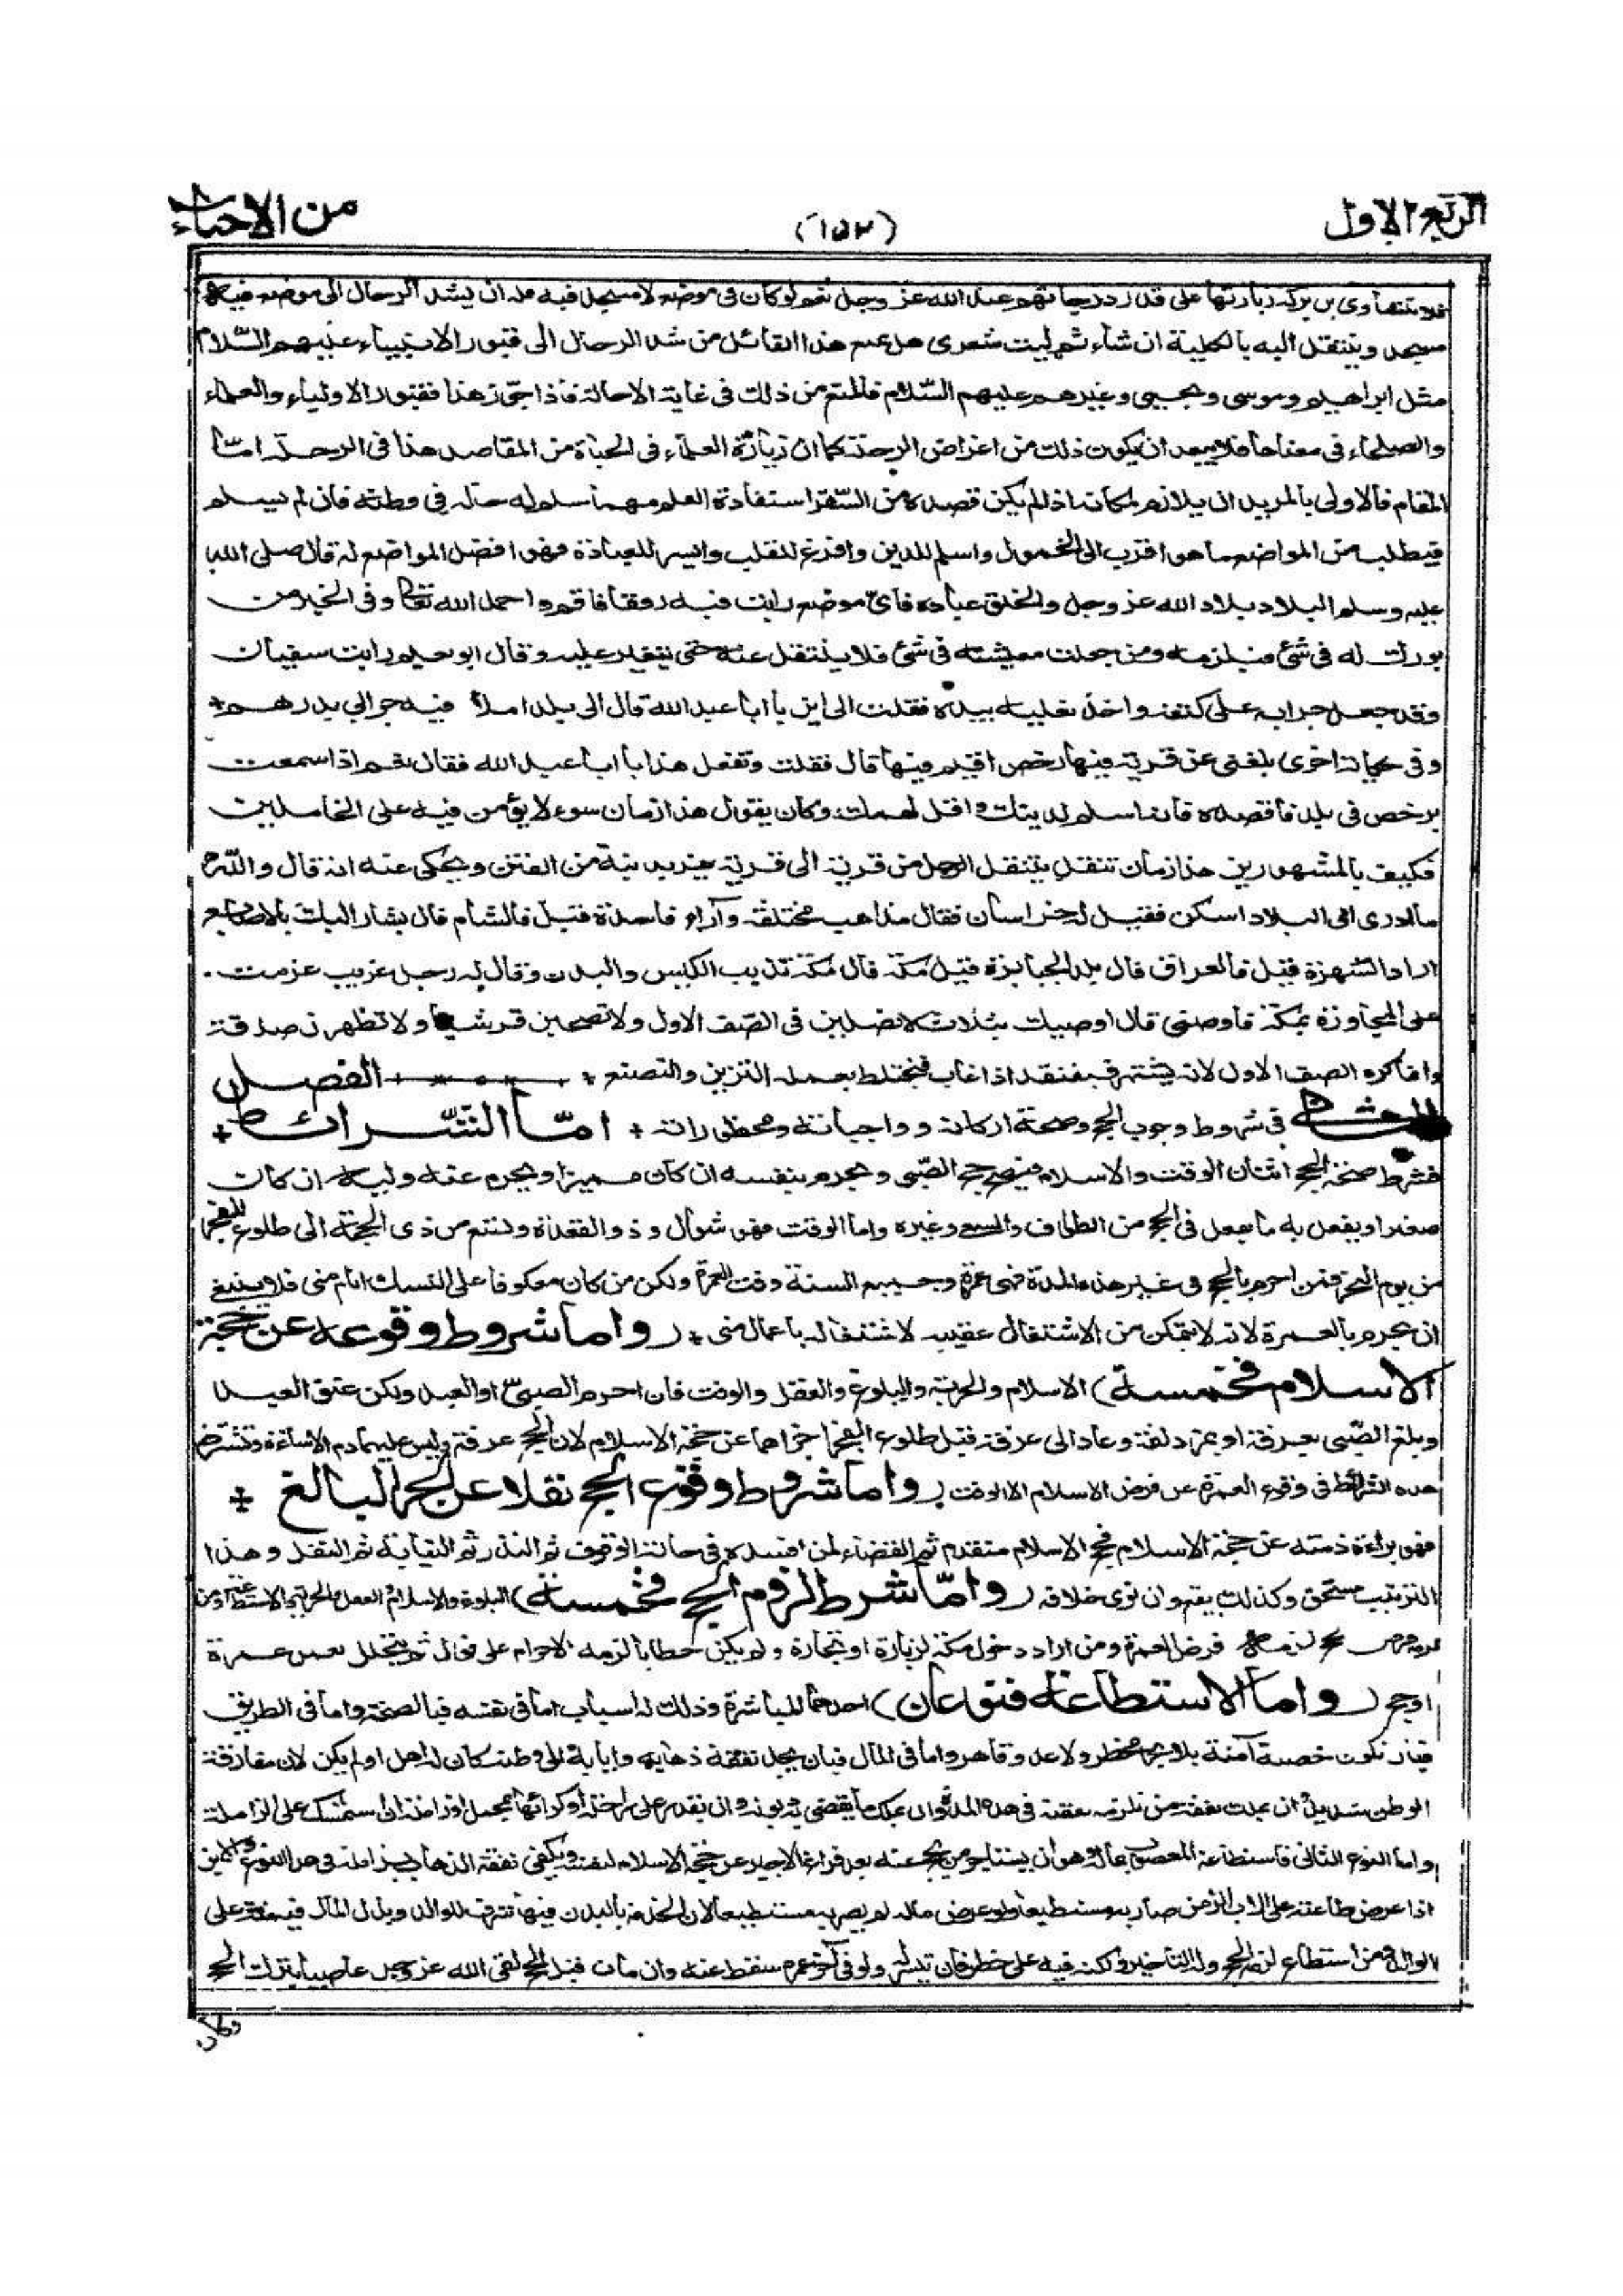 الربع الاول
(١٥٢)
من الاحياء
فلا تتساوى بل بركة زيارتها على قدر درجاتهم عند الله عز وجل نعم لو كان فى موضع لا مسجد فيه فله ان يشد الرحال الى موضع فيه
مسجد وينتقل اليه بالكلية ان شاء ثم ليت شعرى هل يمنع هذا القائل من شد الرحال الى قبور الانبياء عليهم السلام
مثل ابراهيم وموسى ويحيى وغيرهم عليهم السلام فالمنع من ذلك فى غاية الاحالة فاذا جوز هذا فقبور الاولياء والعلماء
والصلحاء فى معناها فلا يبعد ان يكون ذلك من اغراض الرحلة كما ان زيارة العلماء فى الحياة من المقاصد هذا فى الرحلة امّا
المقام فالاولى بالمريد ان يلازم مكانه اذا لم يكن قصده من السفر استفادة العلم مهما سلم له حاله فى وطنه فان لم يسلم
فيطلب من المواضع ما هو اقرب الى الخمول واسلم للدين وافرغ للقلب وايسر للعبادة فهو افضل المواضع له قال صلى الله
عليه وسلم البلاد بلاد الله عز وجل والخلق عباده فاى موضع رايت فيه رفقا فاقم واحمد الله تعالى وفى الخبر من
بورك له فى شئ فليلزمه ومن جعلت معيشته فى شئ فلا ينتقل عنه حتى يتغير عليه وقال ابو نعيم رايت سفيان
وقد جعل جرابه على كتفه واخذ نعليه بيده فقلت الى اين يا ابا عبد الله قال الى بلد املأ فيه جرابى بدرهم +
وفى حكاية اخرى بلغنى عن قرية فيها رخص اقيم فيها قال فقلت وتفعل هذا يا ابا عبد الله فقال نعم اذا سمعت
برخص فى بلد فاقصده فانه اسلم لدينك واقل لهمك وكان يقول هذا زمان سوء لا يؤمن فيه على الخاملين
فكيف بالمشهورين هذا زمان تنقل ينتقل الرجل من قرية الى قرية يفر بدينه من الفتن ويحكى عنه انه قال والله
ما ادرى اى البلاد اسكن فقيل له خراسان فقال مذاهب مختلفة وآراء فاسدة قيل فالشام قال يشار اليك بالاصابع
اراد الشهرة قيل فالعراق قال بلد الجبابرة قيل مكة قال مكة تذيب الكيس والبدن وقال له رجل غريب عزمت
على المجاورة بمكة فاوصنى قال اوصيك بثلاث لا تصلين فى الصف الاول ولا تصحبن قرشيا ولا تظهرن صدقة
وانما كره الصف الاول لانه يشتهر فيفتقد اذا غاب فيختلط بعمله التزين والتصنع + الفصل
الثانى فى شروط وجوب الحج وصحة اركانه وواجباته ومحظوراته + امّا الشّرائط +
فشرط صحة الحج اثنان الوقت والاسلام فيصح حج الصبى ويحرم بنفسه ان كان مميزا ويحرم عنه وليه ان كان
صغيرا ويفعل به ما يفعل فى الحج من الطواف والسعى وغيره واما الوقت فهو شوال وذو القعدة وتسع من ذى الحجة الى طلوع الفجر
من يوم النحر فمن احرم بالحج فى غير هذه المدة فهى عمرة وجميع السنة وقت العمرة ولكن من كان معكوفا على النسك ايام منى فلا ينبغى
ان يحرم بالعمرة لانه لا يتمكن من الاشتغال عقيبه لاشتغاله باعمال منى + (واما شروط وقوعه عن حجة
الاسلام فخمسة) الاسلام والحرية والبلوغ والعقل والوقت فان احرم الصبى او العبد ولكن عتق العبد
وبلغ الصبى بعرفة او بمزدلفة وعاد الى عرفة قبل طلوع الفجر اجزاهما عن حجة الاسلام لان الحج عرفة وليس عليهما دم الاساءة وتشترط
هذه الشرائط فى وقوع العمرة عن فرض الاسلام الا الوقت (واما شروط وقوع الحج نفلا عن الحر البالغ +
فهو براءة ذمته عن حجة الاسلام فحج الاسلام متقدم ثم القضاء لمن افسده فى حالة الوقوف ثم النذر ثم النيابة ثم النفل وهذا
الترتيب مستحق وكذلك يقع وان نوى خلافه (وامّا شرط لزوم الحج فخمسة) البلوغ والاسلام والعقل والحرية والاستطاعة ومن
لزمه فرض الحج لزمه فرض العمرة ومن اراد دخول مكة لزيارة او تجارة ولم يكن حطابا لزمه الاحرام على قول ثم يتحلل بعمل عمرة
او حج (واما الاستطاعة فنوعان) احدهما المباشرة وذلك له اسباب اما فى نفسه فبالصحة واما فى الطريق
فبان تكون خصبة آمنة بلا بحر مخطر ولا عدو قاهر واما فى المال فبان يجد نفقة ذهابه وايابه الى وطنه كان له اهل او لم يكن لان مفارقة
الوطن شديدة وان يملك نفقة من تلزمه نفقته فى هذه المدة وان يملك ما يقضى به ديونه وان يقدر على راحلة او كرائها بمحمل او زاملة ان استمسك على الزاملة
واما النوع الثانى فاستطاعة المعضوب بماله وهو ان يستاجر من يحج عنه بعد فراغ الاجير عن حجة الاسلام لنفسه ويكفى نفقة الذهاب بزاملة فى هذا النوع والابن
اذا عرض طاعته على الاب الزمن صار به مستطيعا ولو عرض ماله لم يصر به مستطيعا لان الخدمة بالبدن فيها شرف للوالد وبذل المال فيه منة على
الوالد ومن استطاع لزمه الحج وله التاخير ولكنه فيه على خطر فان تيسر له ولو فى آخر عمره سقط عنه وان مات قبل الحج لقى الله عز وجل عاصيا بترك الحج
وكان